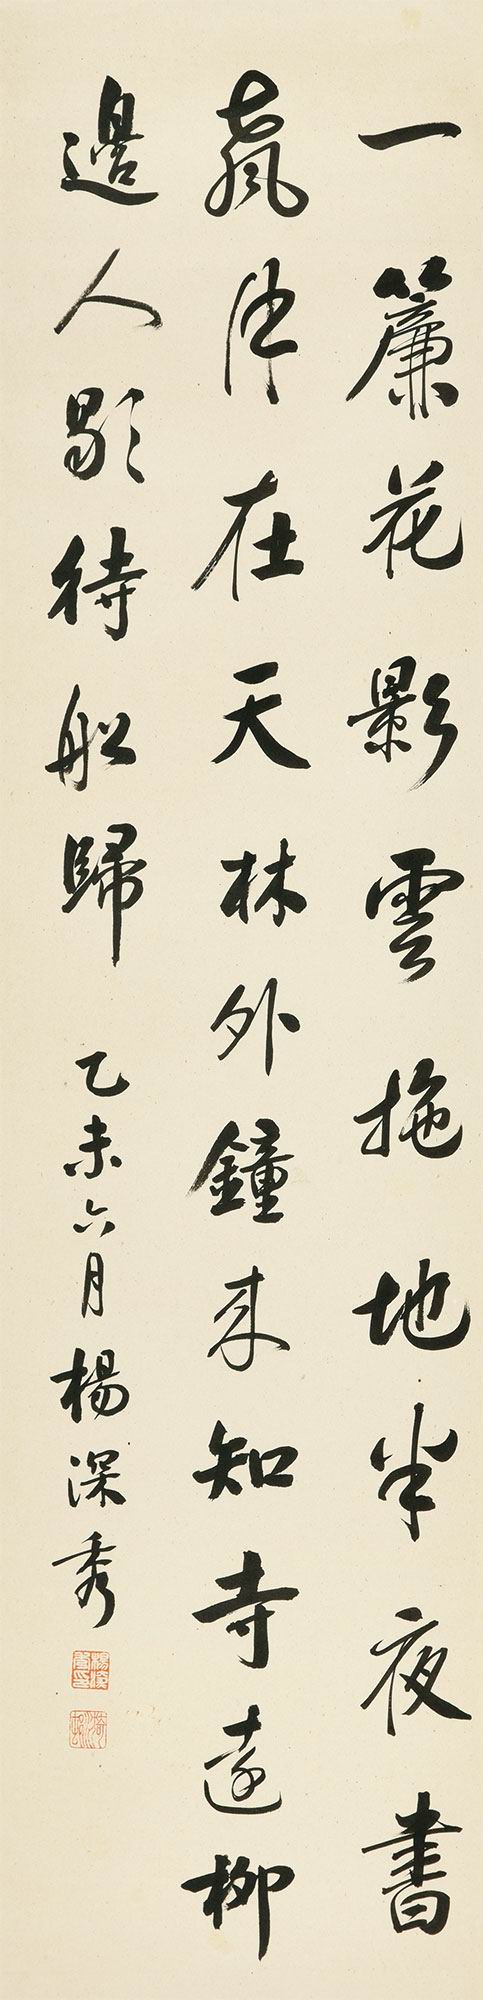 一簾花影雲拖地半夜書
聲在天林外鐘來知寺遠柳
邊人歇待船歸
乙未六月楊深秀
楊深秀印